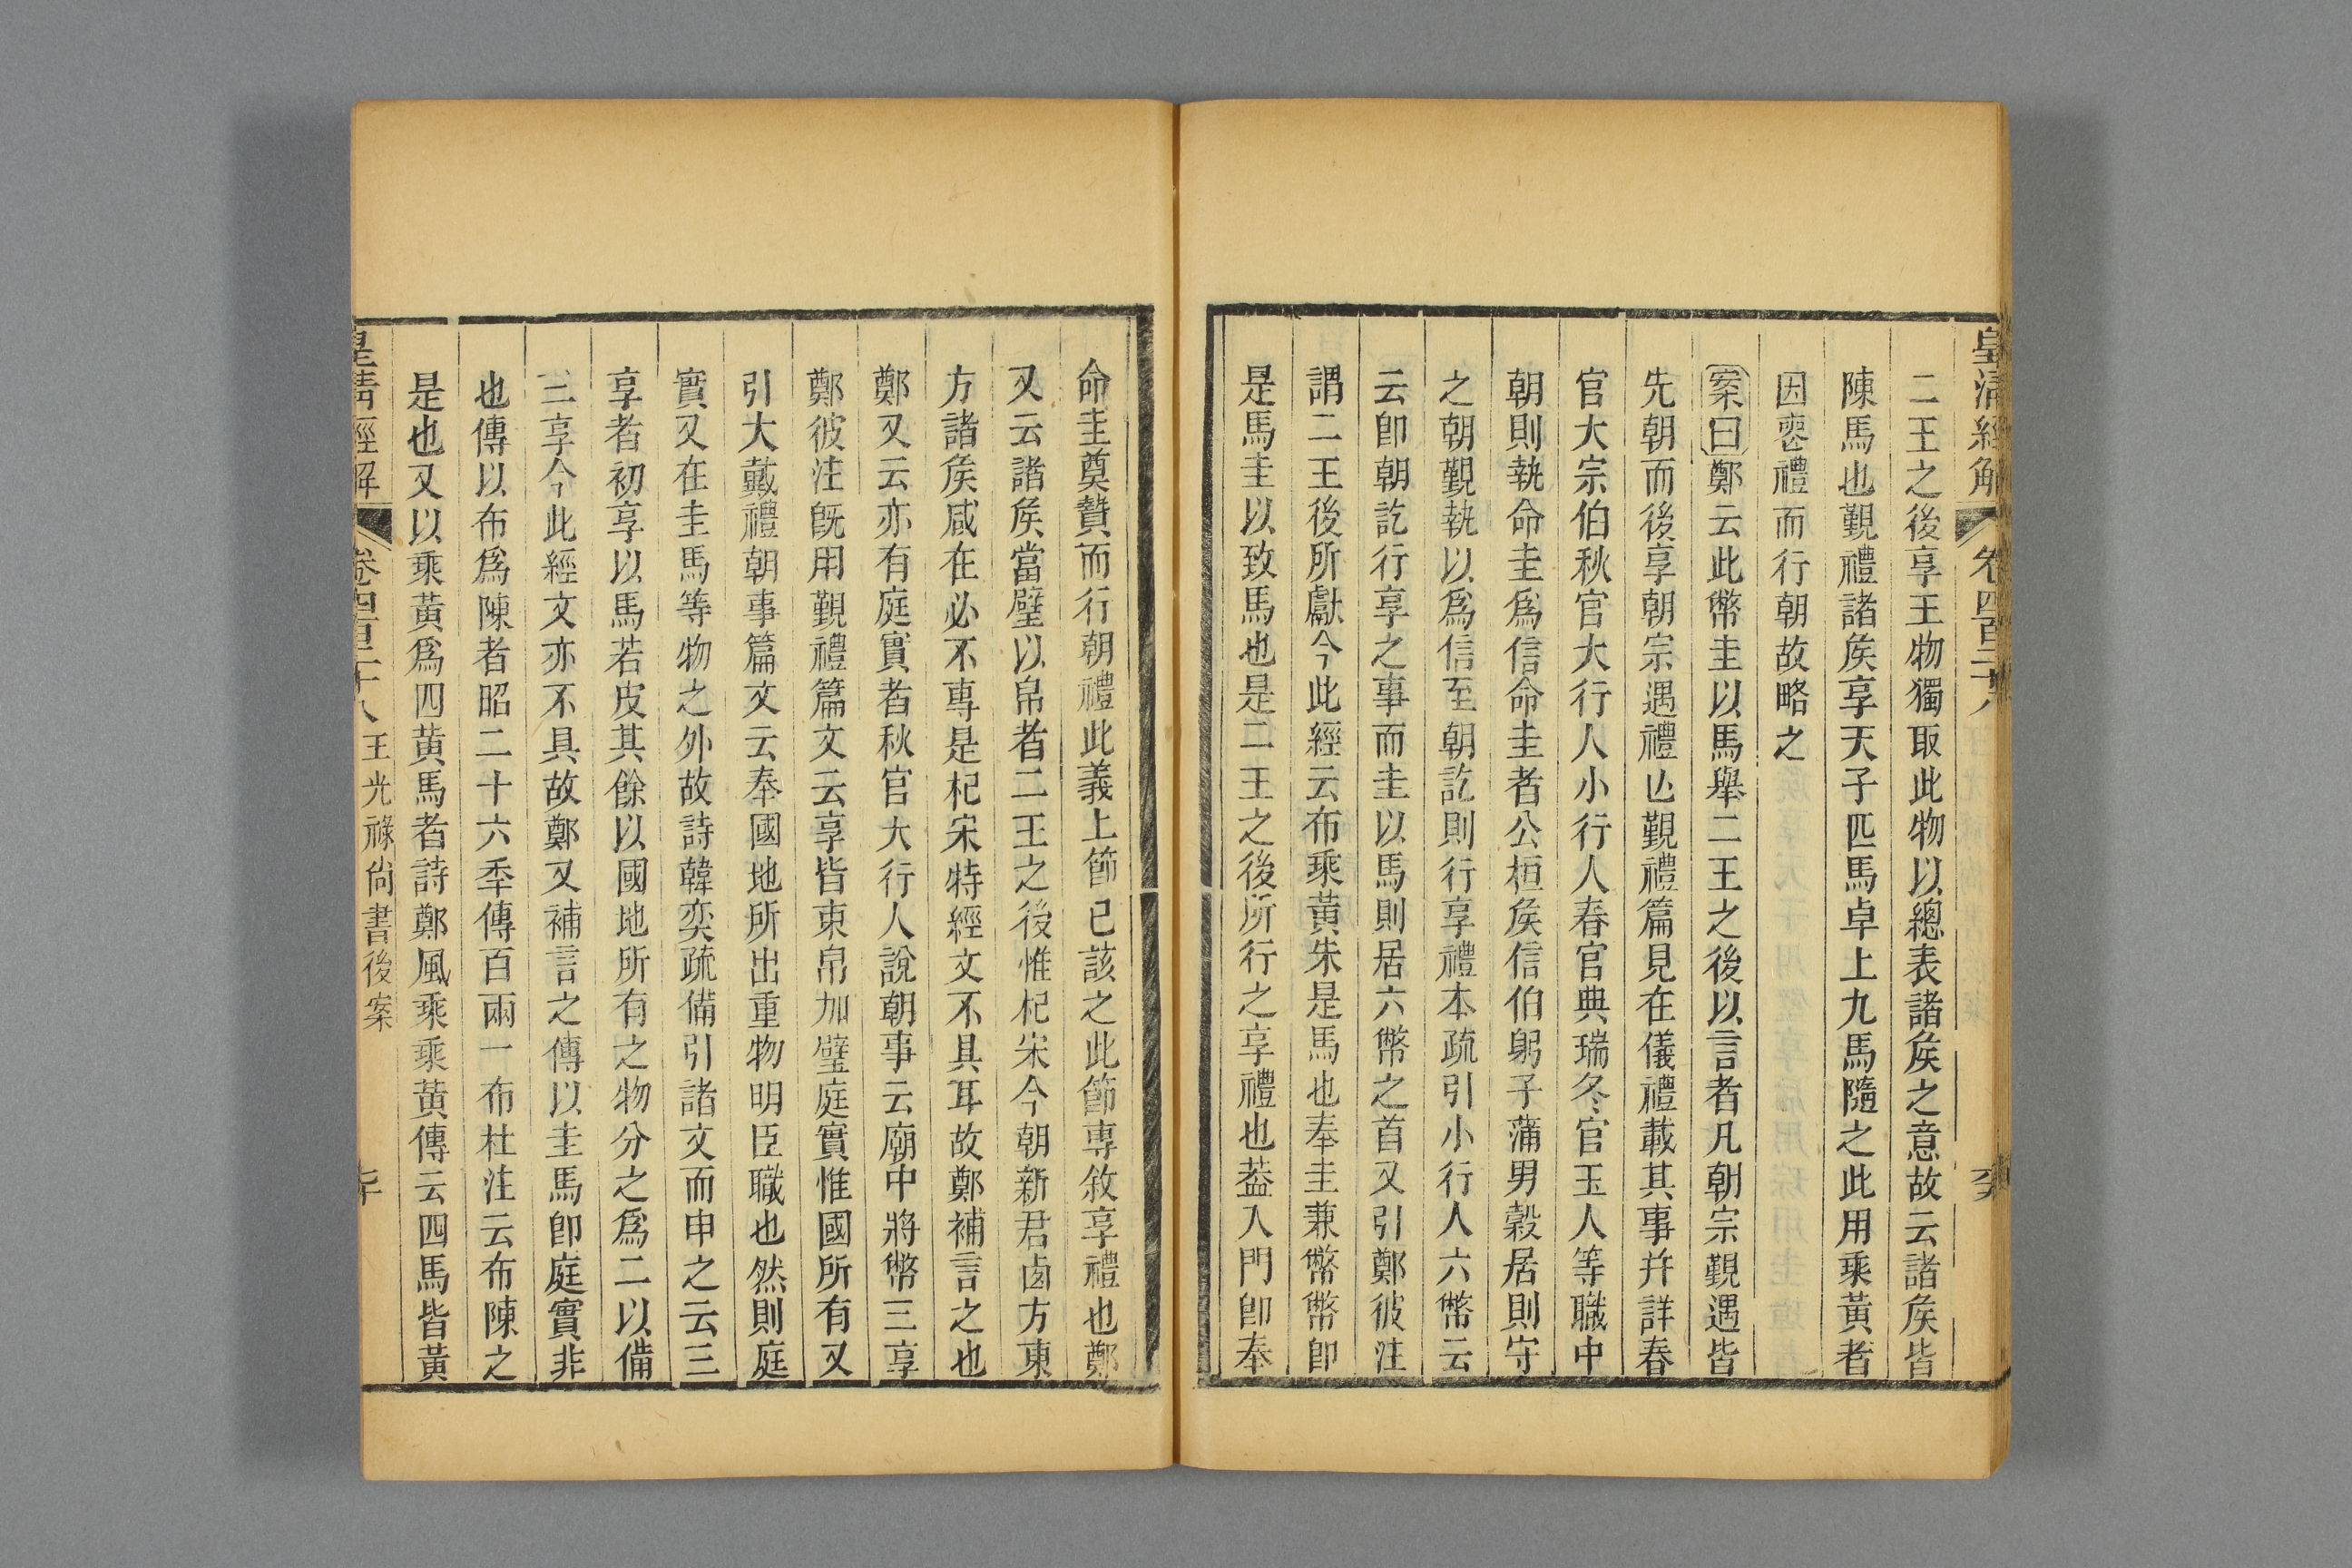 皇清經解
卷四百二十八
二王之後享王物獨取此物以總表諸矦之意故云諸矦皆
陳馬也覲禮諸矦享天子匹馬卓上九馬隨之此用乘黃者
因喪禮而行朝故略之
案曰鄭云此幣圭以馬舉二王之後以言者凡朝宗覲遇皆
先朝而後享朝宗遇禮亾覲禮篇見在儀禮載其事幷詳春
官大宗伯秋官大行人小行人春官典瑞冬官玉人等職中
朝則執命圭爲信命圭者公桓矦信伯躬子蒲男榖居則守
之朝覲執以爲信至朝訖則行享禮本疏引小行人六幣云
云卽朝訖行享之事而圭以馬則居六幣之首又引鄭彼注
謂二王後所獻今此經云布乘黃朱是馬也奉圭兼幣幣卽
是馬圭以致馬也是二王之後所行之享禮也葢入門卽奉
命圭奠贄而行朝禮此義上節已該之此節專敘享禮也鄭
又云諸矦當璧以帛者二王之後惟杞宋今朝新君鹵方東
方諸矦咸在必不專是杞宋特經文不具耳故鄭補言之也
鄭又云亦有庭實者秋官大行人說朝事云廟中將幣三享
鄭彼注旣用覲禮篇文云享皆束帛加璧庭實惟國所有又
引大戴禮朝事篇文云奉國地所出重物明臣職也然則庭
實又在圭馬等物之外故詩韓奕疏備引諸文而申之云三
享者初享以馬若皮其餘以國地所有之物分之爲二以備
三享今此經文亦不具故鄭又補言之傳以圭馬卽庭實非
也傳以布爲陳者昭二十六秊傳百兩一布杜注云布陳之
是也又以乘黃爲四黃馬者詩鄭風乘乘黃傳云四馬皆黃
皇清經解
卷四百二十八 王光祿尙書後案